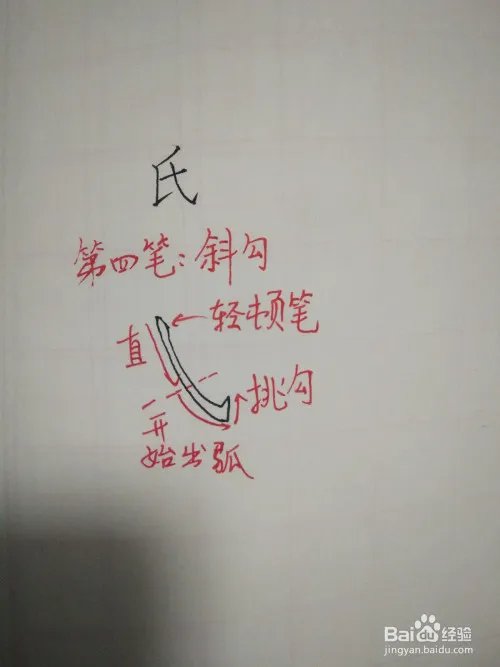 氏
第四笔:斜勾
轻顿笔
直
挑勾
开
始出弧
Baidu经验
jingyan.baidu.com